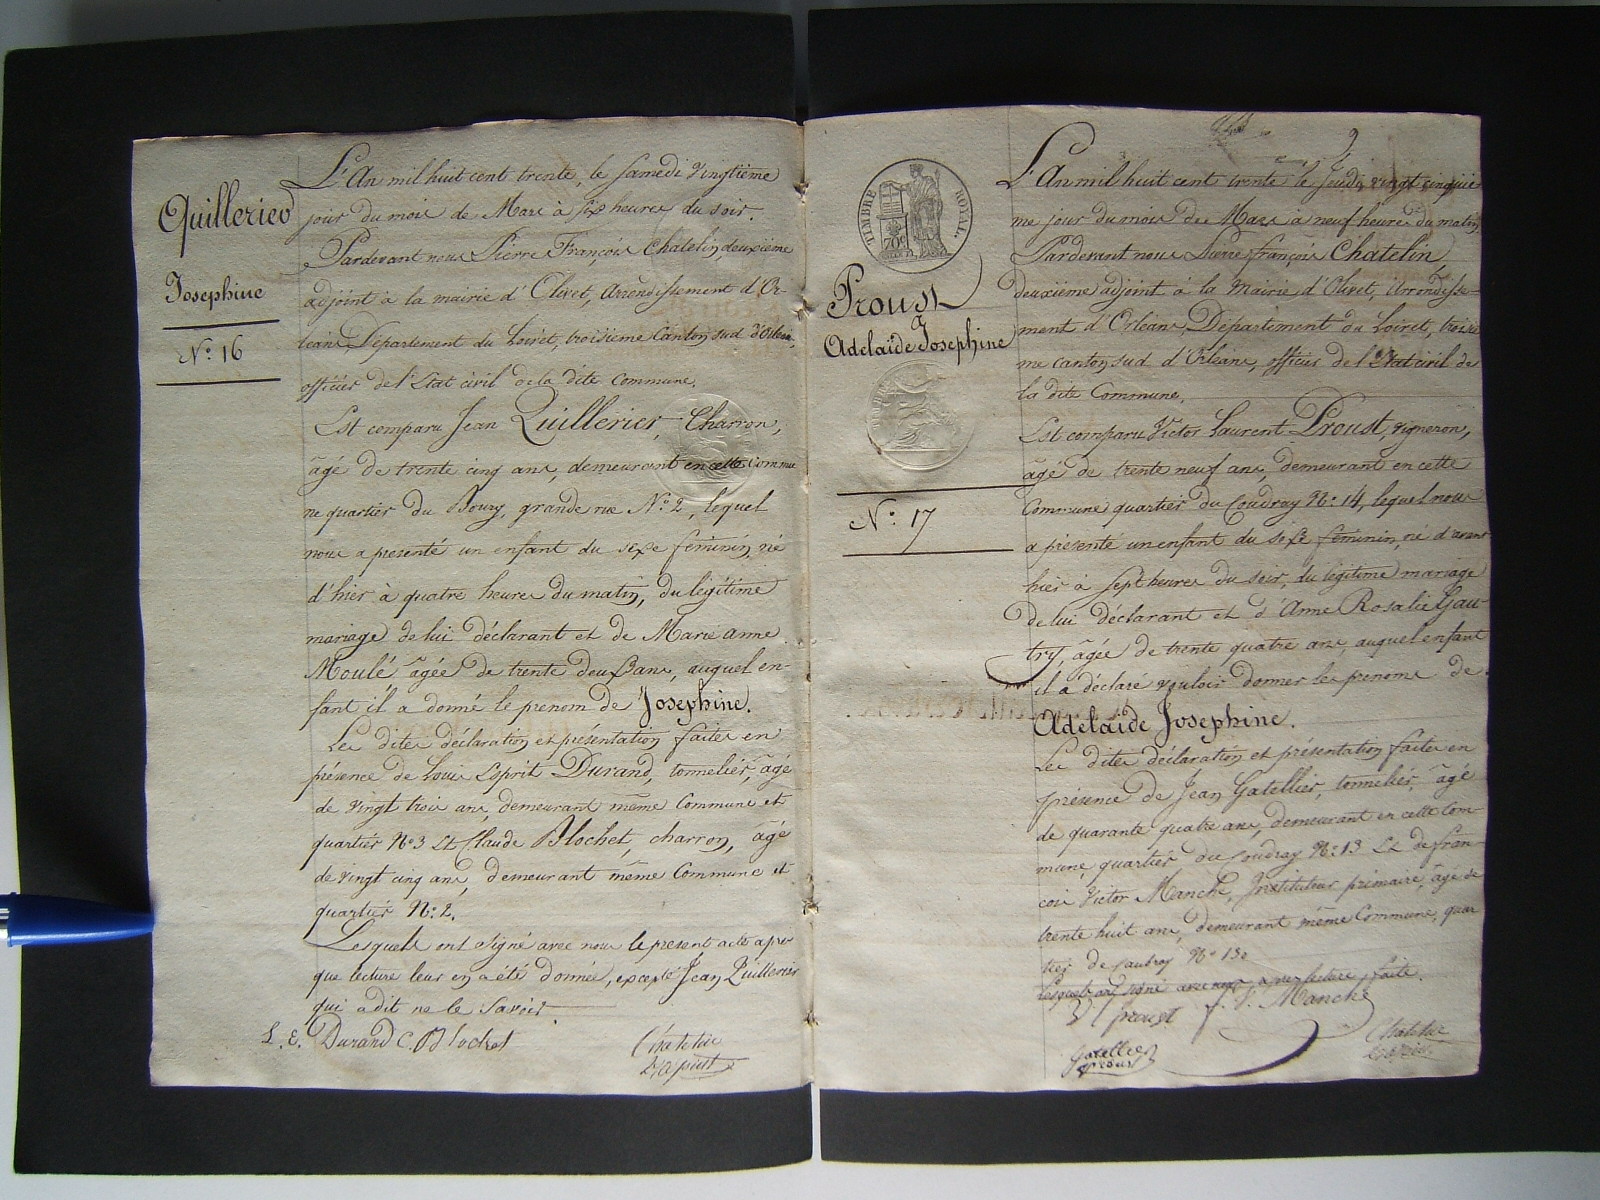 Quillerier
Josephine
N.o 16
L'An mil huit cent trente, le Samedi vingtieme
jour du mois de Mars à six heures du soir.
Pardevant nous Pierre François Chatelin, deuxième
adjoint à la mairie d'Olivet, Arrondissement d'Or-
léans, Département du Loiret, troisieme Canton sud d'Orléans,
officier de l'Etat civil de la dite Commune.
Est comparu Jean Quillerier, Charron,
âgé de trente cinq ans, demeurant en cette commu
ne quartier du Bourg, grande rue N.o 2, lequel
nous a presenté un enfant du sexe féminin, né
d'hier à quatre heures du matin, du légitime
mariage de lui déclarant et de Marie Anne
Moulé âgée de trente deux ans, auquel en-
fant il a donné le prenom de Josephine.
Les dites déclaration et présentation faites en
présence de Louis Esprit Durand, tonnelier, âgé
de vingt trois ans, demeurant même Commune et
quartier N.o 3 Et Claude Blochet, charron, âgé
de vingt cinq ans, demeurant même Commune et
quartier N.o 2.
Lesquels ont signé avec nous le present acte après
que lecture leur en a été donnée, excepté Jean Quillerier
qui a dit ne le Savoir.
L. E. Durand C. Blochet
Chatelin
TIMBRE ROYAL.
70c
Proust
Adelaïde Josephine
N.o 17
9
L'An mil huit cent trente le Jeudi vingt cinquiè
me jour du mois de Mars à neuf heures du matin,
Pardevant nous Pierre françois Chatelin
deuxième adjoint à la Mairie d'Olivet, Arrondisse-
ment d'Orléans, Département du Loiret, troisiè
me canton sud d'Orléans, officier de l'Etat civil de
la dite Commune.
Est comparu Victor Laurent Proust, vigneron,
âgé de trente neuf ans, demeurant en cette
Commune quartier du Coudray N.o 14, lequel nous
a présenté un enfant du sexe féminin, né d'avant
hier à sept heures du soir, du légitime mariage
de lui déclarant et d'Anne Rosalie Gau-
try, âgée de trente quatre ans, auquel enfant
il a déclaré vouloir donner les prenoms de
Adelaïde Josephine.
Les dites déclaration et présentation faites en
présence de Jean Gatellier, tonnelier, âgé
de quarante quatre ans, demeurant en cette Com-
mune, quartier du Coudray N.o 13 Et de fran-
cois Victor Manché, Instituteur primaire, âgé de
trente huit ans, demeurant même Commune, quar
tier de Caudray N.o 13.
Lesquels ont signé avec nous après lecture faite.
proust f. V. Manché
Gatellier
Chatelin